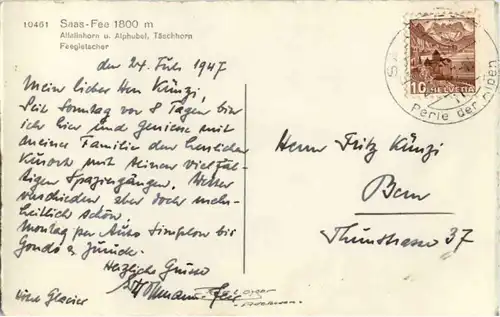 10461 Saas-Fee 1800 m
Allalinhorn u. Alphubel, Täschhorn
Feegletscher
den 24. Juli 1947
Mein lieber Herr Künzi,
Seit Sonntag vor 8 Tagen bin
ich hier und geniesse mit
meiner Familie den herrlichen
Kurort mit seinen vielfäl-
tigen Spaziergängen. Wetter
verschieden aber doch mehr-
heitlich schön.
Montag per Auto Simplon bis
Gondo & zurück.
Herzliche Grüsse
Hôtel Glacier
10 HELVETIA
Perle der Alpen
Herrn Fritz Künzi
Bern
Thunstrasse 37